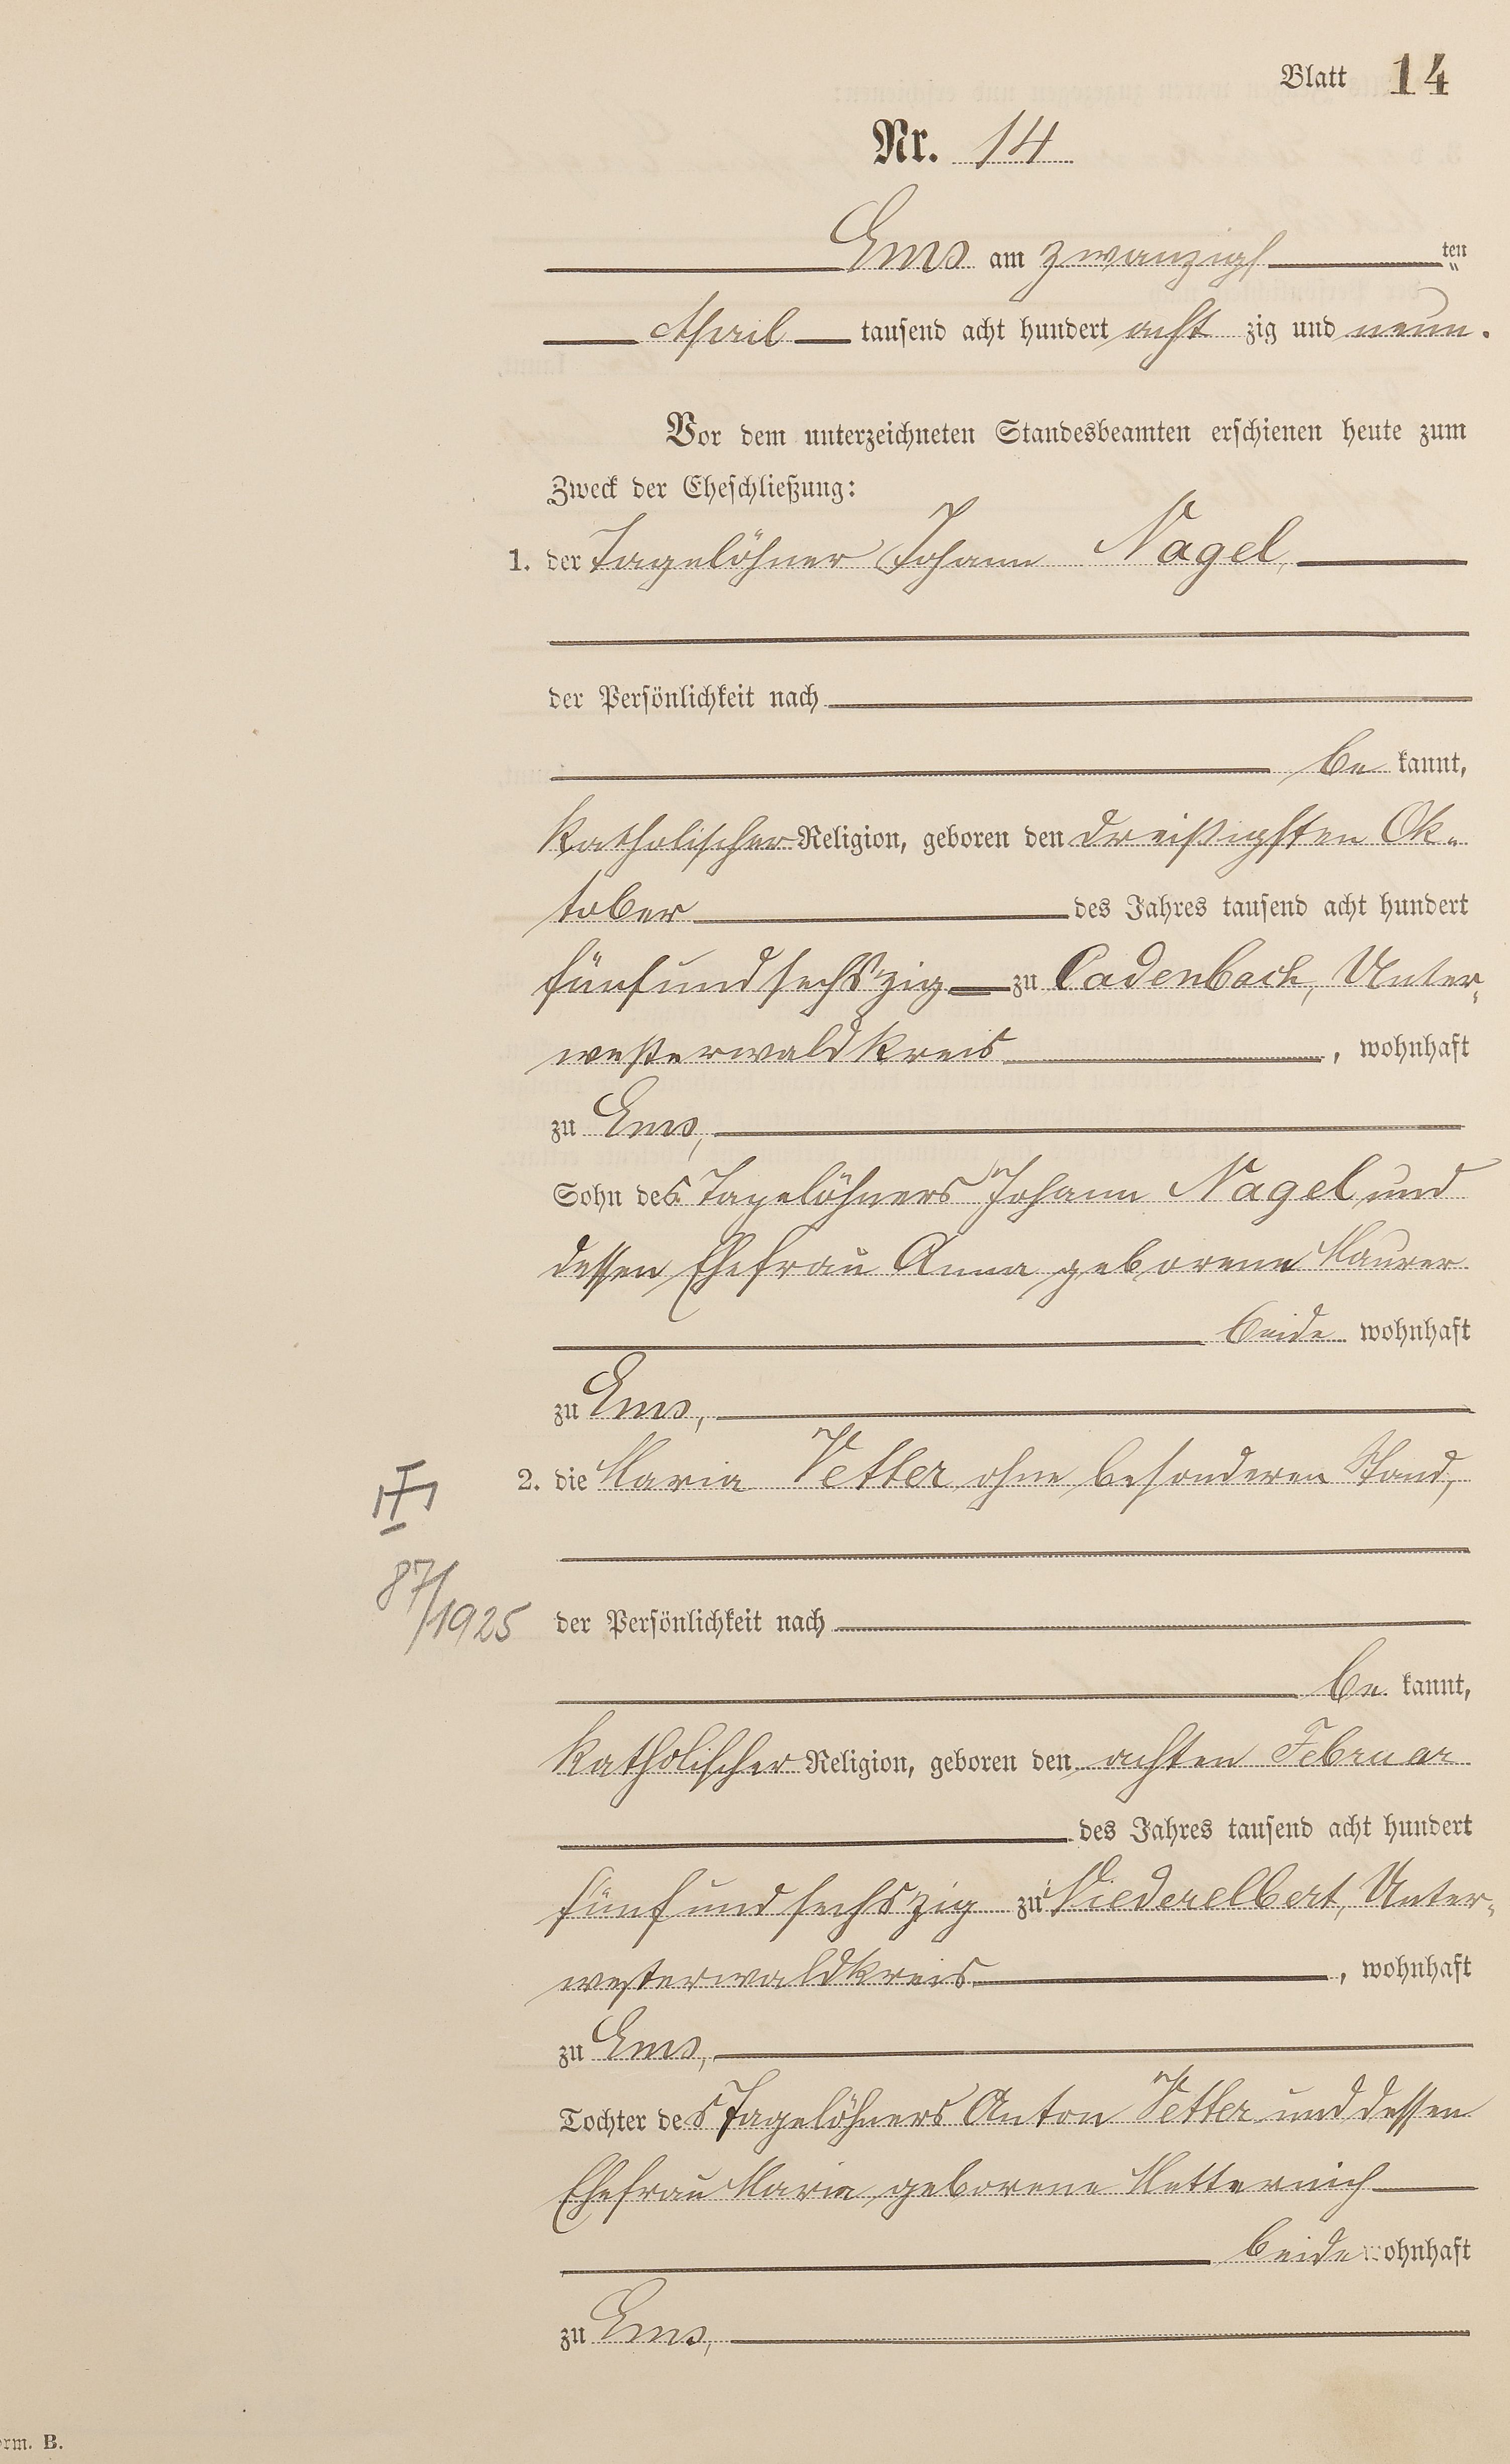 Blatt 14
Nr. 14
Ems am zwanzigsten
April tausend acht hundert acht zig und neun.
Vor dem unterzeichneten Standesbeamten erschienen heute zum
Zweck der Eheschließung:
1. der Tagelöhner Johann Nagel,
der Persönlichkeit nach
be kannt,
katholischer Religion, geboren den dreißigsten Ok-
tober des Jahres tausend acht hundert
fünfundsechszig zu Cadenbach, Unter-
westerwaldkreis, wohnhaft
zu Ems,
Sohn des Tagelöhners Johann Nagel und
dessen Ehefrau Anna geborene Maurer
beide wohnhaft
zu Ems,
2. die Maria Vetter ohne besonderen Stand,
der Persönlichkeit nach
87/1925
be kannt,
katholischer Religion, geboren den achten Februar
des Jahres tausend acht hundert
fünfundsechszig zu Niederelbert, Unter-
westerwaldkreis, wohnhaft
zu Ems,
Tochter des Tagelöhners Anton Vetter und dessen
Ehefrau Maria geborene Metternich
beide wohnhaft
zu Ems,
orm. B.